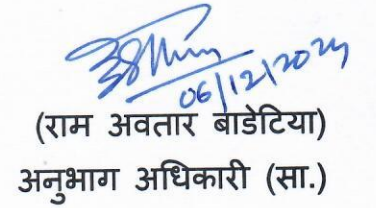 06/12/2024
(राम अवतार बाडेटिया)
अनुभाग अधिकारी (सा.)